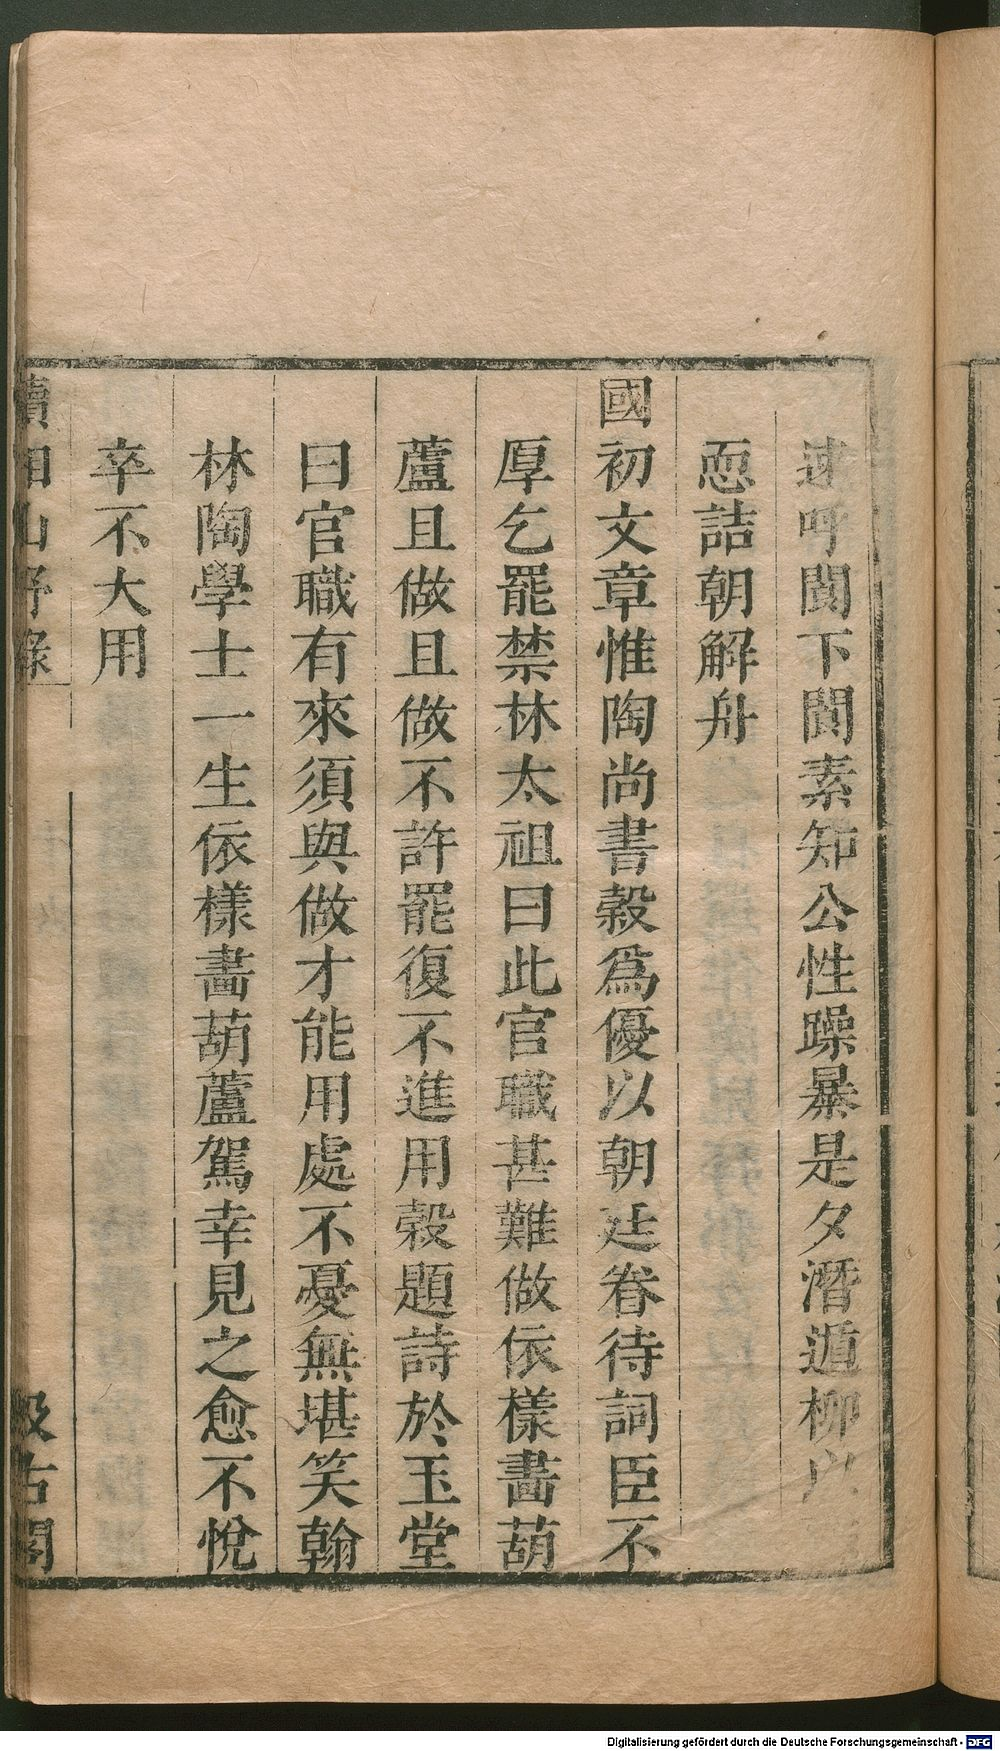 速呼閽下閽素知公性躁暴是夕潛遁柳以
恧詰朝解舟
國初文章惟陶尚書穀爲優以朝廷眷待詞臣不
厚乞罷禁林太祖曰此官職甚難做依樣畫葫
蘆且做且做不許罷復不進用穀題詩於玉堂
曰官職有來須與做才能用處不憂無堪笑翰
林陶學士一生依樣畫葫蘆駕幸見之愈不悅
卒不大用
續湘山野錄
汲古閣
Digitalisierung gefördert durch die Deutsche Forschungsgemeinschaft - DFG